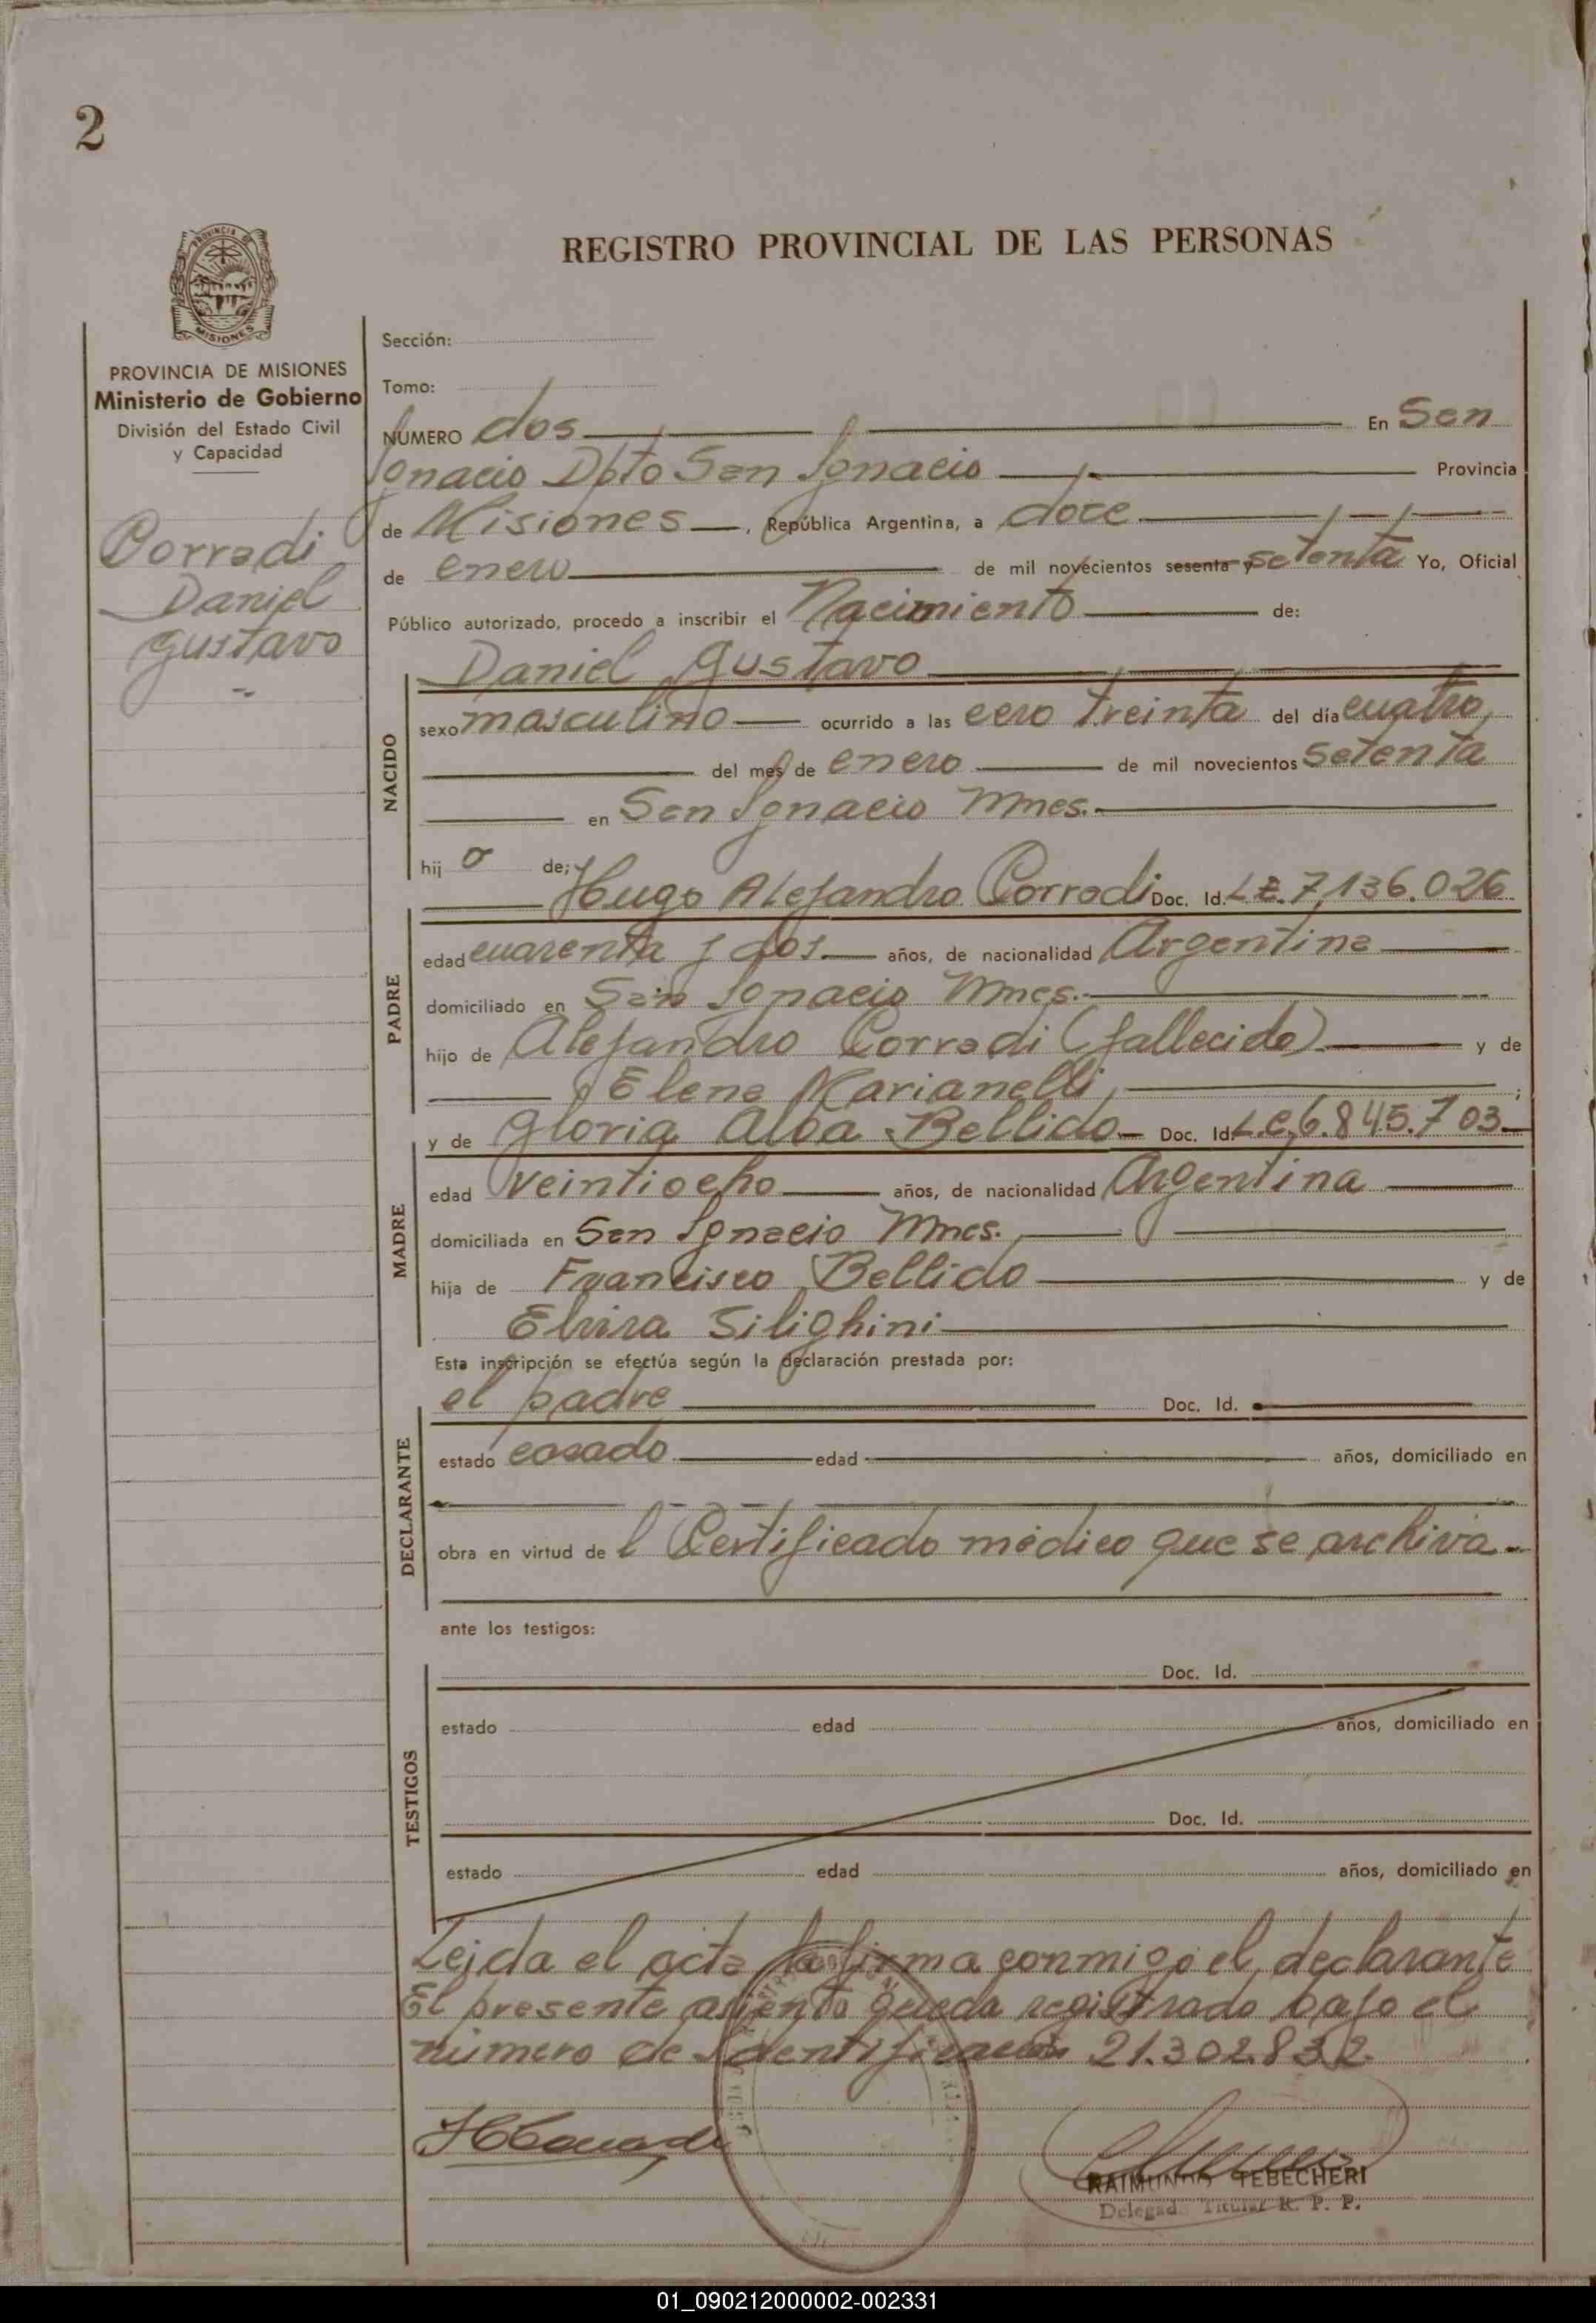 2
REGISTRO PROVINCIAL DE LAS PERSONAS
PROVINCIA DE
MISIONES
PROVINCIA DE MISIONES
Ministerio de Gobierno
División del Estado Civil
y Capacidad
Corradi
Daniel
Gustavo
Sección:
Tomo:
NUMERO dos En San
Ignacio Dpto San Ignacio Provincia
de Misiones, República Argentina, a doce
de enero de mil novecientos sesenta y setenta Yo, Oficial
Público autorizado, procedo a inscribir el Nacimiento de:
Daniel Gustavo
NACIDO
sexo masculino ocurrido a las cero treinta del día cuatro
del mes de enero de mil novecientos setenta
en San Ignacio Mnes.
hij o de;
Hugo Alejandro Corradi Doc. Id. L.E. 7.136.026
PADRE
edad cuarenta y dos años, de nacionalidad Argentina
domiciliado en San Ignacio Mnes.
hijo de Alejandro Corradi (fallecido) y de
Elena Marianelli ;
y de Gloria Alba Bellido Doc. Id. L.C. 6.845.703
MADRE
edad veintiocho años, de nacionalidad Argentina
domiciliada en San Ignacio Mnes.
hija de Francisco Bellido y de
Elvira Silighini
Esta inscripción se efectúa según la declaración prestada por:
el padre Doc. Id.
DECLARANTE
estado casado edad años, domiciliado en
obra en virtud de l Certificado médico que se archiva
ante los testigos:
TESTIGOS
Doc. Id.
estado edad años, domiciliado en
Doc. Id.
estado edad años, domiciliado en
Leida el acta la firma conmigo el declarante
El presente asiento queda registrado bajo el
número de Identificación 21.302.832.
RAIMUNDO TEBECHERI
Delegado Titular R. P. P.
01_090212000002-002331